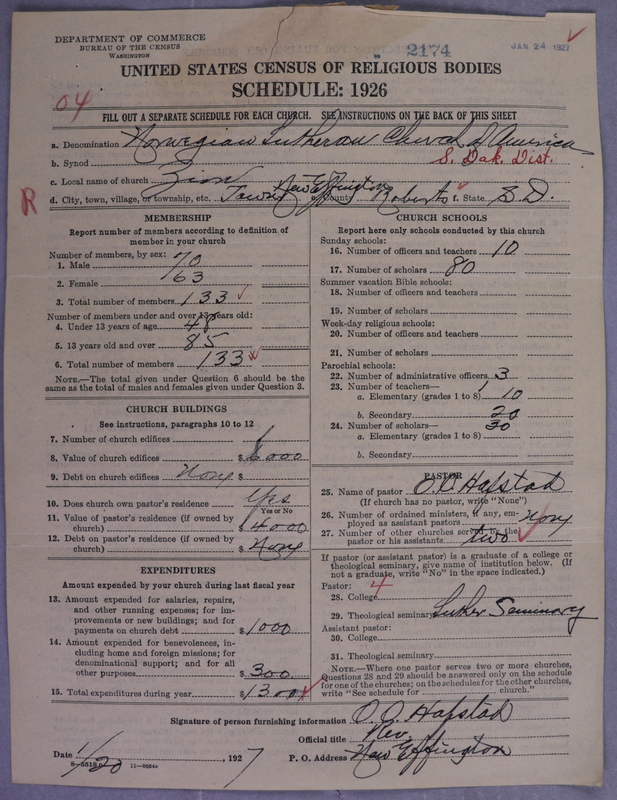 DEPARTMENT OF COMMERCE
BUREAU OF THE CENSUS
WASHINGTON
2174
JAN 24 1927
UNITED STATES CENSUS OF RELIGIOUS BODIES
SCHEDULE: 1926
04
FILL OUT A SEPARATE SCHEDULE FOR EACH CHURCH. SEE INSTRUCTIONS ON THE BACK OF THIS SHEET
a. Denomination Norwegian Lutheran Church of America
b. Synod S. Dak. Dist.
c. Local name of church Zion
R
d. City, town, village, or township, etc. Town New Effington County Roberts f. State S.D.
MEMBERSHIP
Report number of members according to definition of
member in your church
Number of members, by sex:
1. Male 70
2. Female 63
3. Total number of members 133
Number of members under and over 13 years old:
4. Under 13 years of age 48
5. 13 years old and over 85
6. Total number of members 133
NOTE.—The total given under Question 6 should be the
same as the total of males and females given under Question 3.
CHURCH BUILDINGS
See instructions, paragraphs 10 to 12
7. Number of church edifices 1
8. Value of church edifices $ 8000
9. Debt on church edifices None $
10. Does church own pastor's residence Yes
Yes or No
11. Value of pastor's residence (if owned by
church) $ 4000
12. Debt on pastor's residence (if owned by
church) $ None
EXPENDITURES
Amount expended by your church during last fiscal year
13. Amount expended for salaries, repairs,
and other running expenses; for im-
provements or new buildings; and for
payments on church debt $ 1000
14. Amount expended for benevolences, in-
cluding home and foreign missions; for
denominational support; and for all
other purposes $ 300
15. Total expenditures during year $ 1300
CHURCH SCHOOLS
Report here only schools conducted by this church
Sunday schools:
16. Number of officers and teachers 10
17. Number of scholars 80
Summer vacation Bible schools:
18. Number of officers and teachers
19. Number of scholars
Week-day religious schools:
20. Number of officers and teachers
21. Number of scholars
Parochial schools:
22. Number of administrative officers 3
23. Number of teachers— 1
a. Elementary (grades 1 to 8) 10
b. Secondary 20
24. Number of scholars— 30
a. Elementary (grades 1 to 8)
b. Secondary
PASTOR
25. Name of pastor O. C. Hafstad
(If church has no pastor, write "None")
26. Number of ordained ministers, if any, em-
ployed as assistant pastors None
27. Number of other churches served by the
pastor or his assistants two
If pastor (or assistant pastor) is a graduate of a college or
theological seminary, give name of institution below. (If
not a graduate, write "No" in the space indicated.)
Pastor: 4
28. College
29. Theological seminary Luther Seminary
Assistant pastor:
30. College
31. Theological seminary
NOTE.—Where one pastor serves two or more churches,
Questions 28 and 29 should be answered only on the schedule
for one of the churches; on the schedules for the other churches,
write "See schedule for church."
Signature of person furnishing information O. C. Hafstad
Official title Rev.
Date 1/20, 1927 P. O. Address New Effington